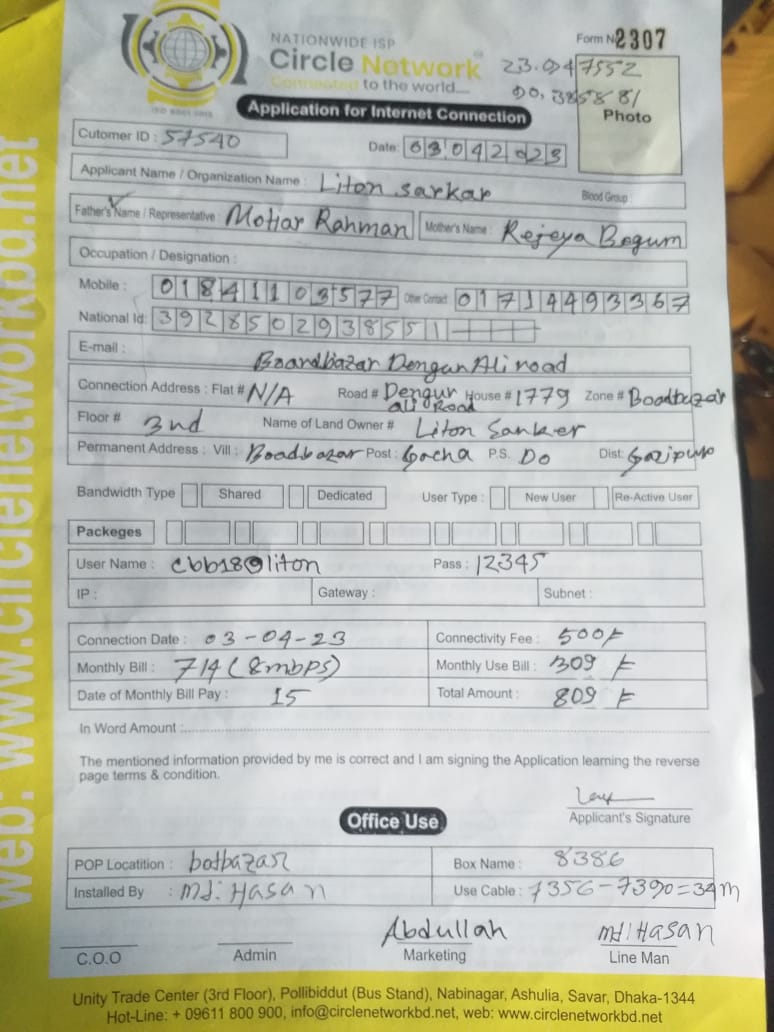 web: www.circlenetworkbd.net
NATIONWIDE ISP
Circle Network
Connected to the world....
ISO 9001:2015
Form No 2307
23.947552
90.385881
Photo
Application for Internet Connection
Cutomer ID : 57540
Date: 03042023
Applicant Name / Organization Name : Liton sarkar
Blood Group :
Father's Name / Representative : Motiar Rahman
Mother's Name : Rejeya Begum
Occupation / Designation :
Mobile : 01841103577
Other Contact 01714493367
National Id: 3928502938551
E-mail :
Boardbazar Dengun Ali road
Connection Address : Flat # N/A Road # Dengur Ali Road House # 1779 Zone # Boadbazar
Floor # 3nd Name of Land Owner # Liton Sanker
Permanent Address : Vill : Boadbazar Post : Gacha P.S. Do Dist: Gazipur
Bandwidth Type Shared Dedicated User Type : New User Re-Active User
Packeges
User Name : cbb18@liton Pass : 12345
IP : Gateway : Subnet :
Connection Date : 03-04-23 Connectivity Fee : 500/-
Monthly Bill : 714 (8mbps) Monthly Use Bill : 309/-
Date of Monthly Bill Pay : 15 Total Amount : 809/-
In Word Amount :
The mentioned information provided by me is correct and I am signing the Application learning the reverse
page terms & condition.
Applicant's Signature
Office Use
POP Locatition : botbazar Box Name : 8386
Installed By : Md: Hasan Use Cable : 7356-7390=34m
C.O.O
Admin
Abdullah
Marketing
Md: Hasan
Line Man
Unity Trade Center (3rd Floor), Pollibiddut (Bus Stand), Nabinagar, Ashulia, Savar, Dhaka-1344
Hot-Line: + 09611 800 900, info@circlenetworkbd.net, web: www.circlenetworkbd.net